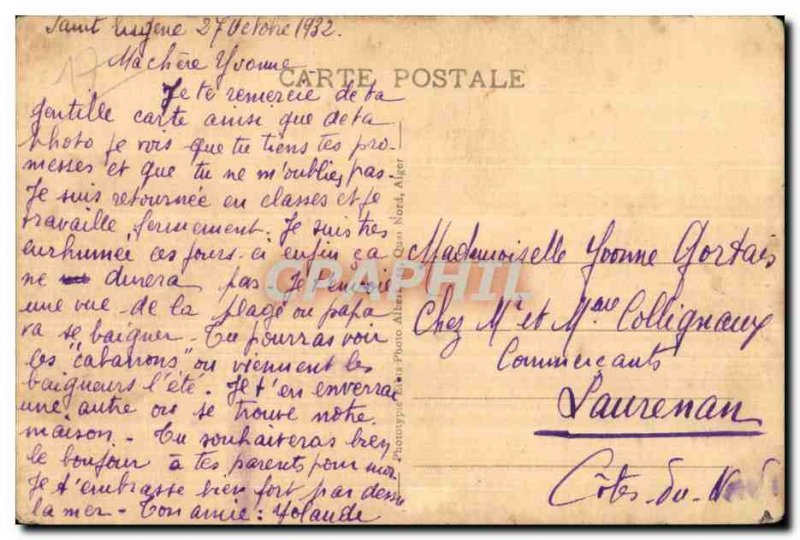 Saint Eugène 27 Octobre 1932.
Ma chère Yvonne
CARTE POSTALE
Je te remercie de ta
gentille carte ainsi que de ta
photo je vois que tu tiens tes pro-
messes et que tu ne m'oublies pas.
Je suis retournée en classes et je
travaille fermement. Je suis très
enrhumée ces jours-ci enfin ça
ne durera pas. Je t'envoie
une vue de la plage ou papa
va se baigner. Tu pourras voir
les "cabanons" ou viennent les
baigneurs l'été. Je t'en enverrai
une autre ou se trouve notre
maison. Tu souhaiteras bien
le bonjour à tes parents pour moi
Je t'embrasse bien fort par dessus
la mer. Ton amie : Yolande
Phototypie Photo Albert Quai Nord, Alger
Mademoiselle Yvonne Gortais
Chez Mr et Mme Collignaux
Commerçants
Laurenan
Côtes-du-Nord
CPAPHIL